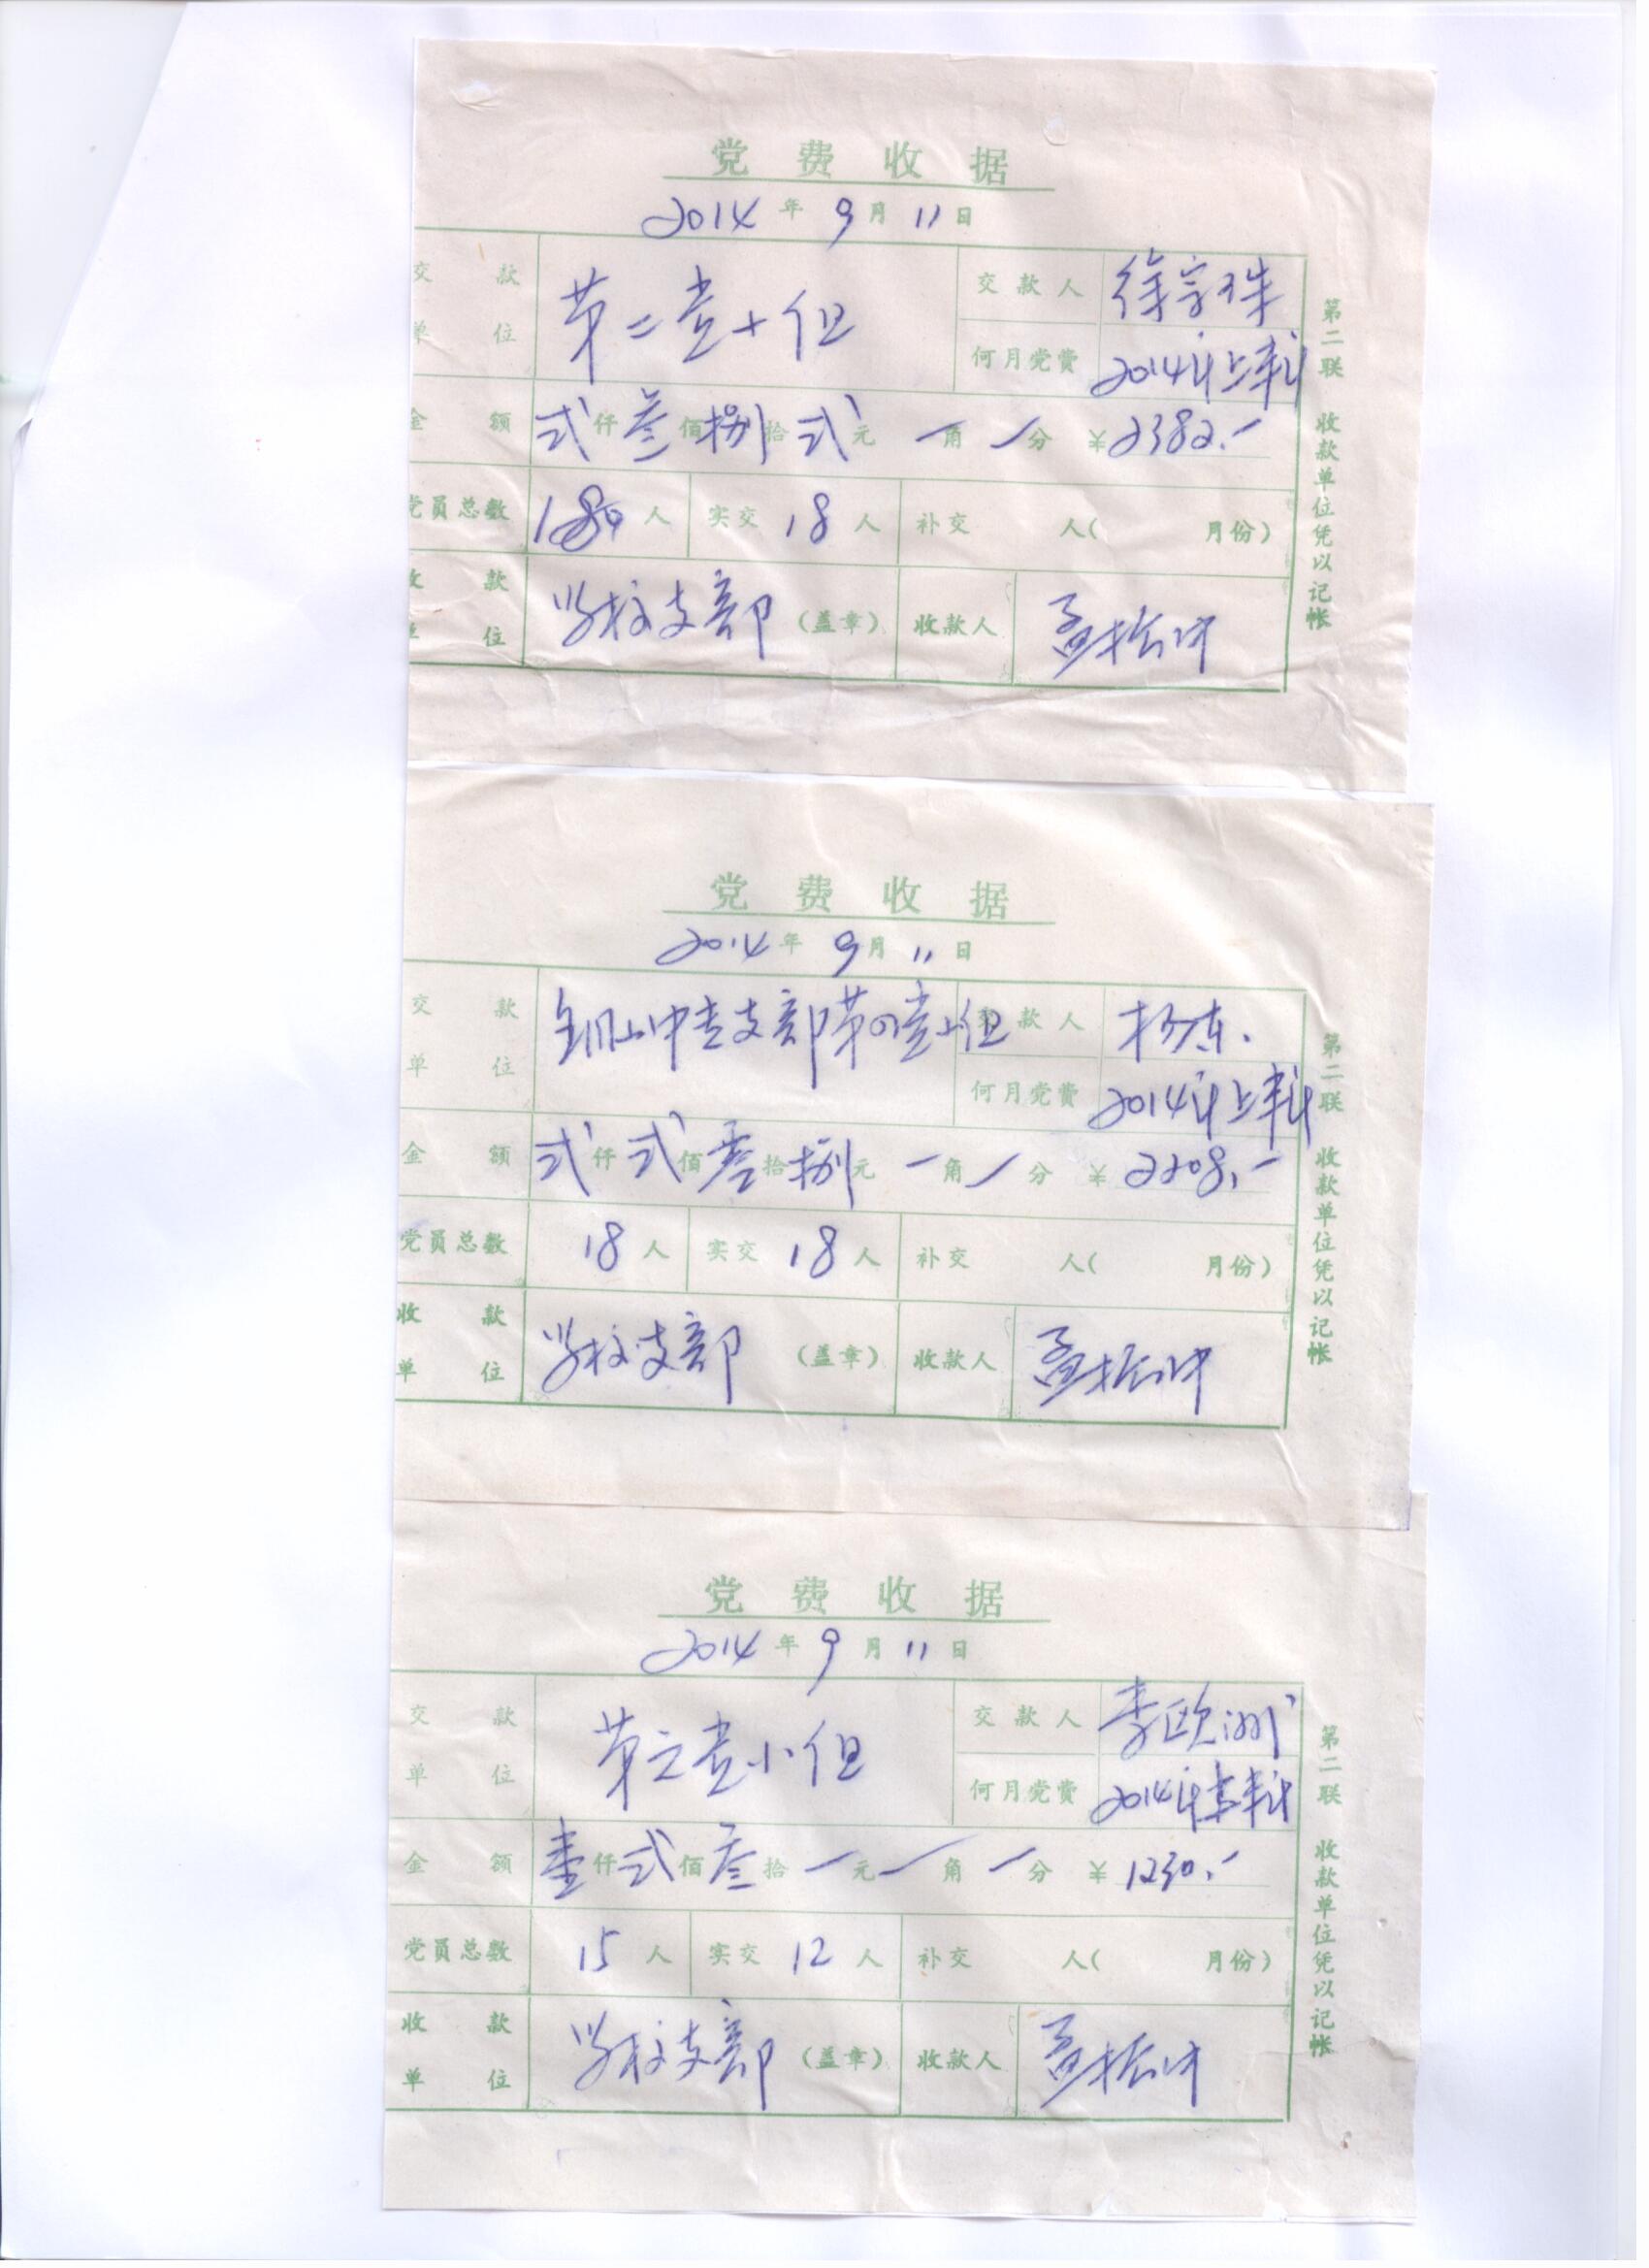 党费收据
2014年9月11日
交款单位 第二党小组 交款人 徐宗珠
何月党费 2014年上半年
金额 弍仟叁佰捌拾弍元一角一分 ¥2382.-
党员总数 18人 实交 18人 补交 人( 月份)
收款单位 学校支部 (盖章) 收款人 孟振冲
第二联 收款单位凭以记帐
党费收据
2014年9月11日
交款单位 铜山中专支部第四党小组 交款人 杨东.
何月党费 2014年上半年
金额 弍仟弍佰零拾捌元一角一分 ¥2208.-
党员总数 18人 实交 18人 补交 人( 月份)
收款单位 学校支部 (盖章) 收款人 孟振冲
第二联 收款单位凭以记帐
党费收据
2014年9月11日
交款单位 第三党小组 交款人 李欧洲
何月党费 2014年上半年
金额 壹仟弍佰叁拾一元一角一分 ¥1230.-
党员总数 15人 实交 12人 补交 人( 月份)
收款单位 学校支部 (盖章) 收款人 孟振冲
第二联 收款单位凭以记帐